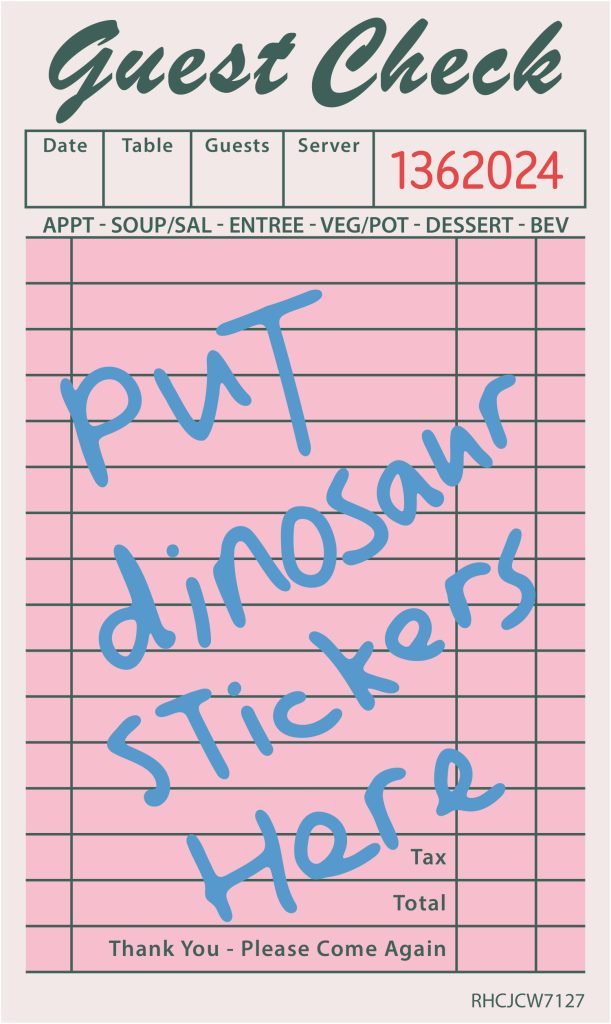 Guest Check
Date Table Guests Server 1362024
APPT - SOUP/SAL - ENTREE - VEG/POT - DESSERT - BEV
PUT
dinosaur
STickers
Here
Tax
Total
Thank You - Please Come Again
RHCJCW7127